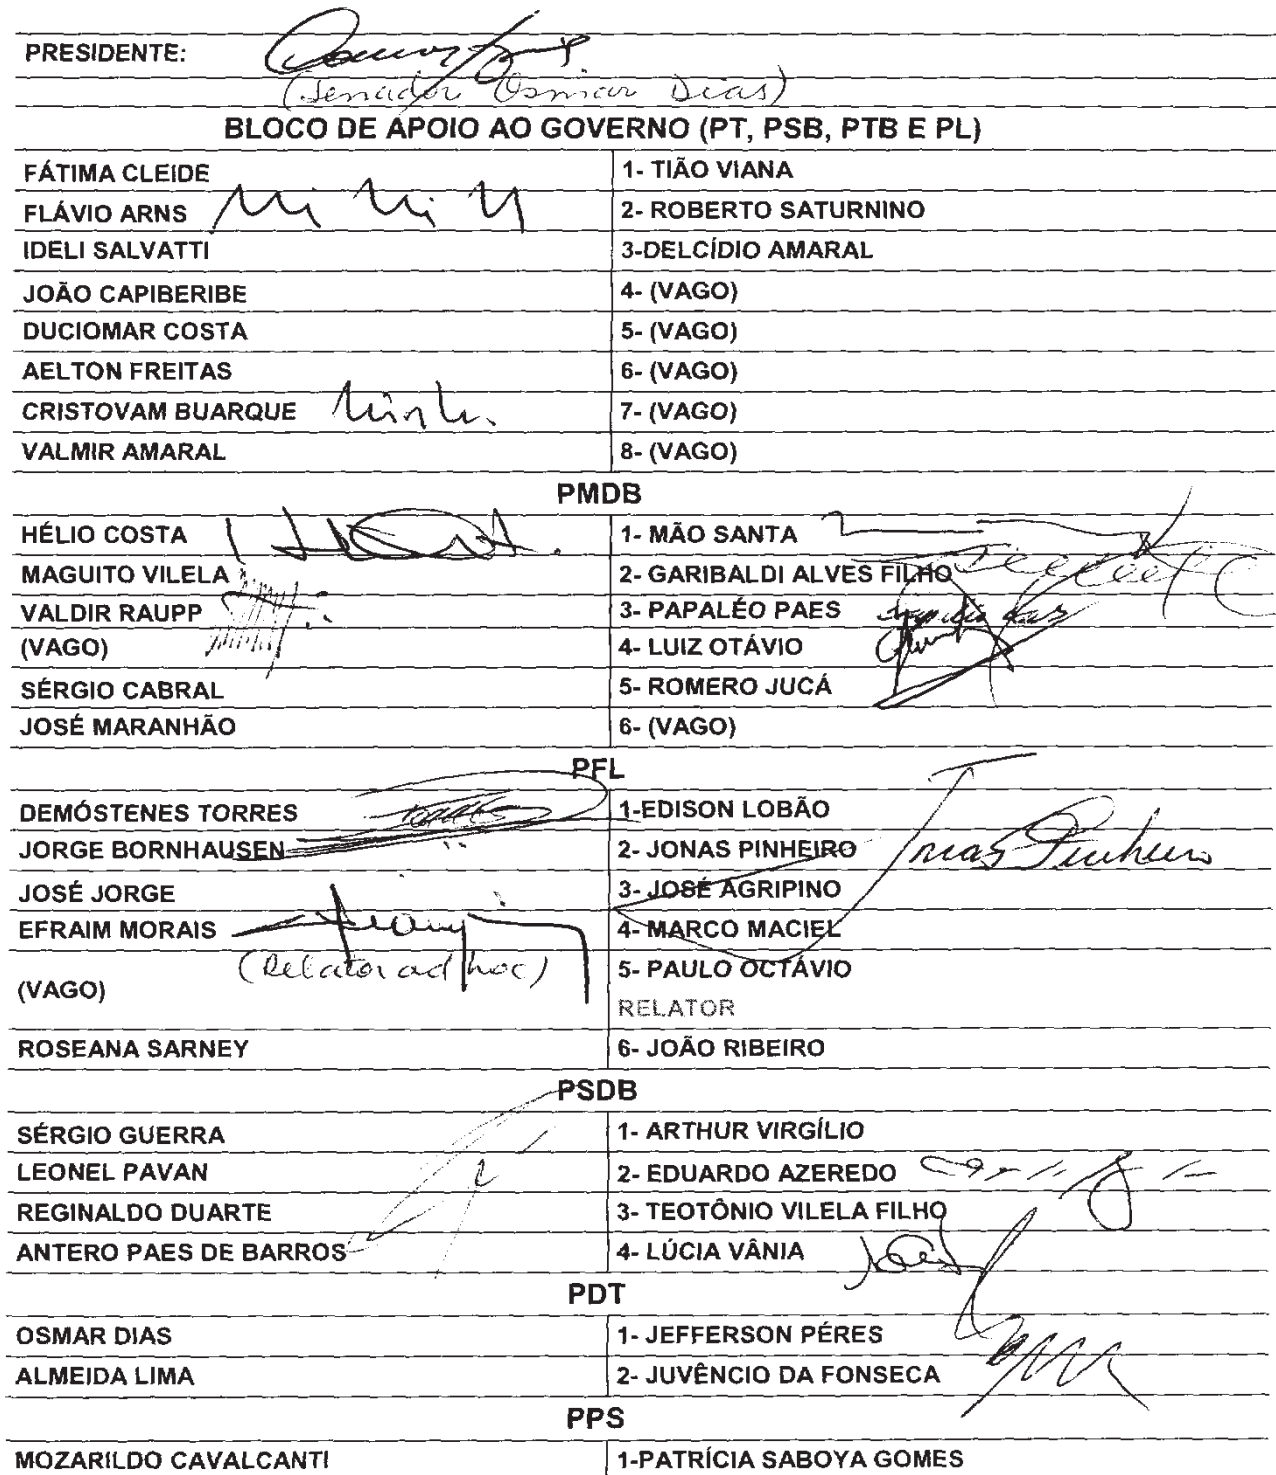 PRESIDENTE:
(Senador Osmar Dias)
BLOCO DE APOIO AO GOVERNO (PT, PSB, PTB E PL)
FÁTIMA CLEIDE 1- TIÃO VIANA
FLÁVIO ARNS 2- ROBERTO SATURNINO
IDELI SALVATTI 3-DELCÍDIO AMARAL
JOÃO CAPIBERIBE 4- (VAGO)
DUCIOMAR COSTA 5- (VAGO)
AELTON FREITAS 6- (VAGO)
CRISTOVAM BUARQUE 7- (VAGO)
VALMIR AMARAL 8- (VAGO)
PMDB
HÉLIO COSTA 1- MÃO SANTA
MAGUITO VILELA 2- GARIBALDI ALVES FILHO
VALDIR RAUPP 3- PAPALÉO PAES
(VAGO) 4- LUIZ OTÁVIO
SÉRGIO CABRAL 5- ROMERO JUCÁ
JOSÉ MARANHÃO 6- (VAGO)
PFL
DEMÓSTENES TORRES 1-EDISON LOBÃO
JORGE BORNHAUSEN 2- JONAS PINHEIRO Jonas Pinheiro
JOSÉ JORGE 3- JOSÉ AGRIPINO
EFRAIM MORAIS 4- MARCO MACIEL
(Relator ad hoc)
(VAGO) 5- PAULO OCTÁVIO
RELATOR
ROSEANA SARNEY 6- JOÃO RIBEIRO
PSDB
SÉRGIO GUERRA 1- ARTHUR VIRGÍLIO
LEONEL PAVAN 2- EDUARDO AZEREDO
REGINALDO DUARTE 3- TEOTÔNIO VILELA FILHO
ANTERO PAES DE BARROS 4- LÚCIA VÂNIA
PDT
OSMAR DIAS 1- JEFFERSON PÉRES
ALMEIDA LIMA 2- JUVÊNCIO DA FONSECA
PPS
MOZARILDO CAVALCANTI 1-PATRÍCIA SABOYA GOMES